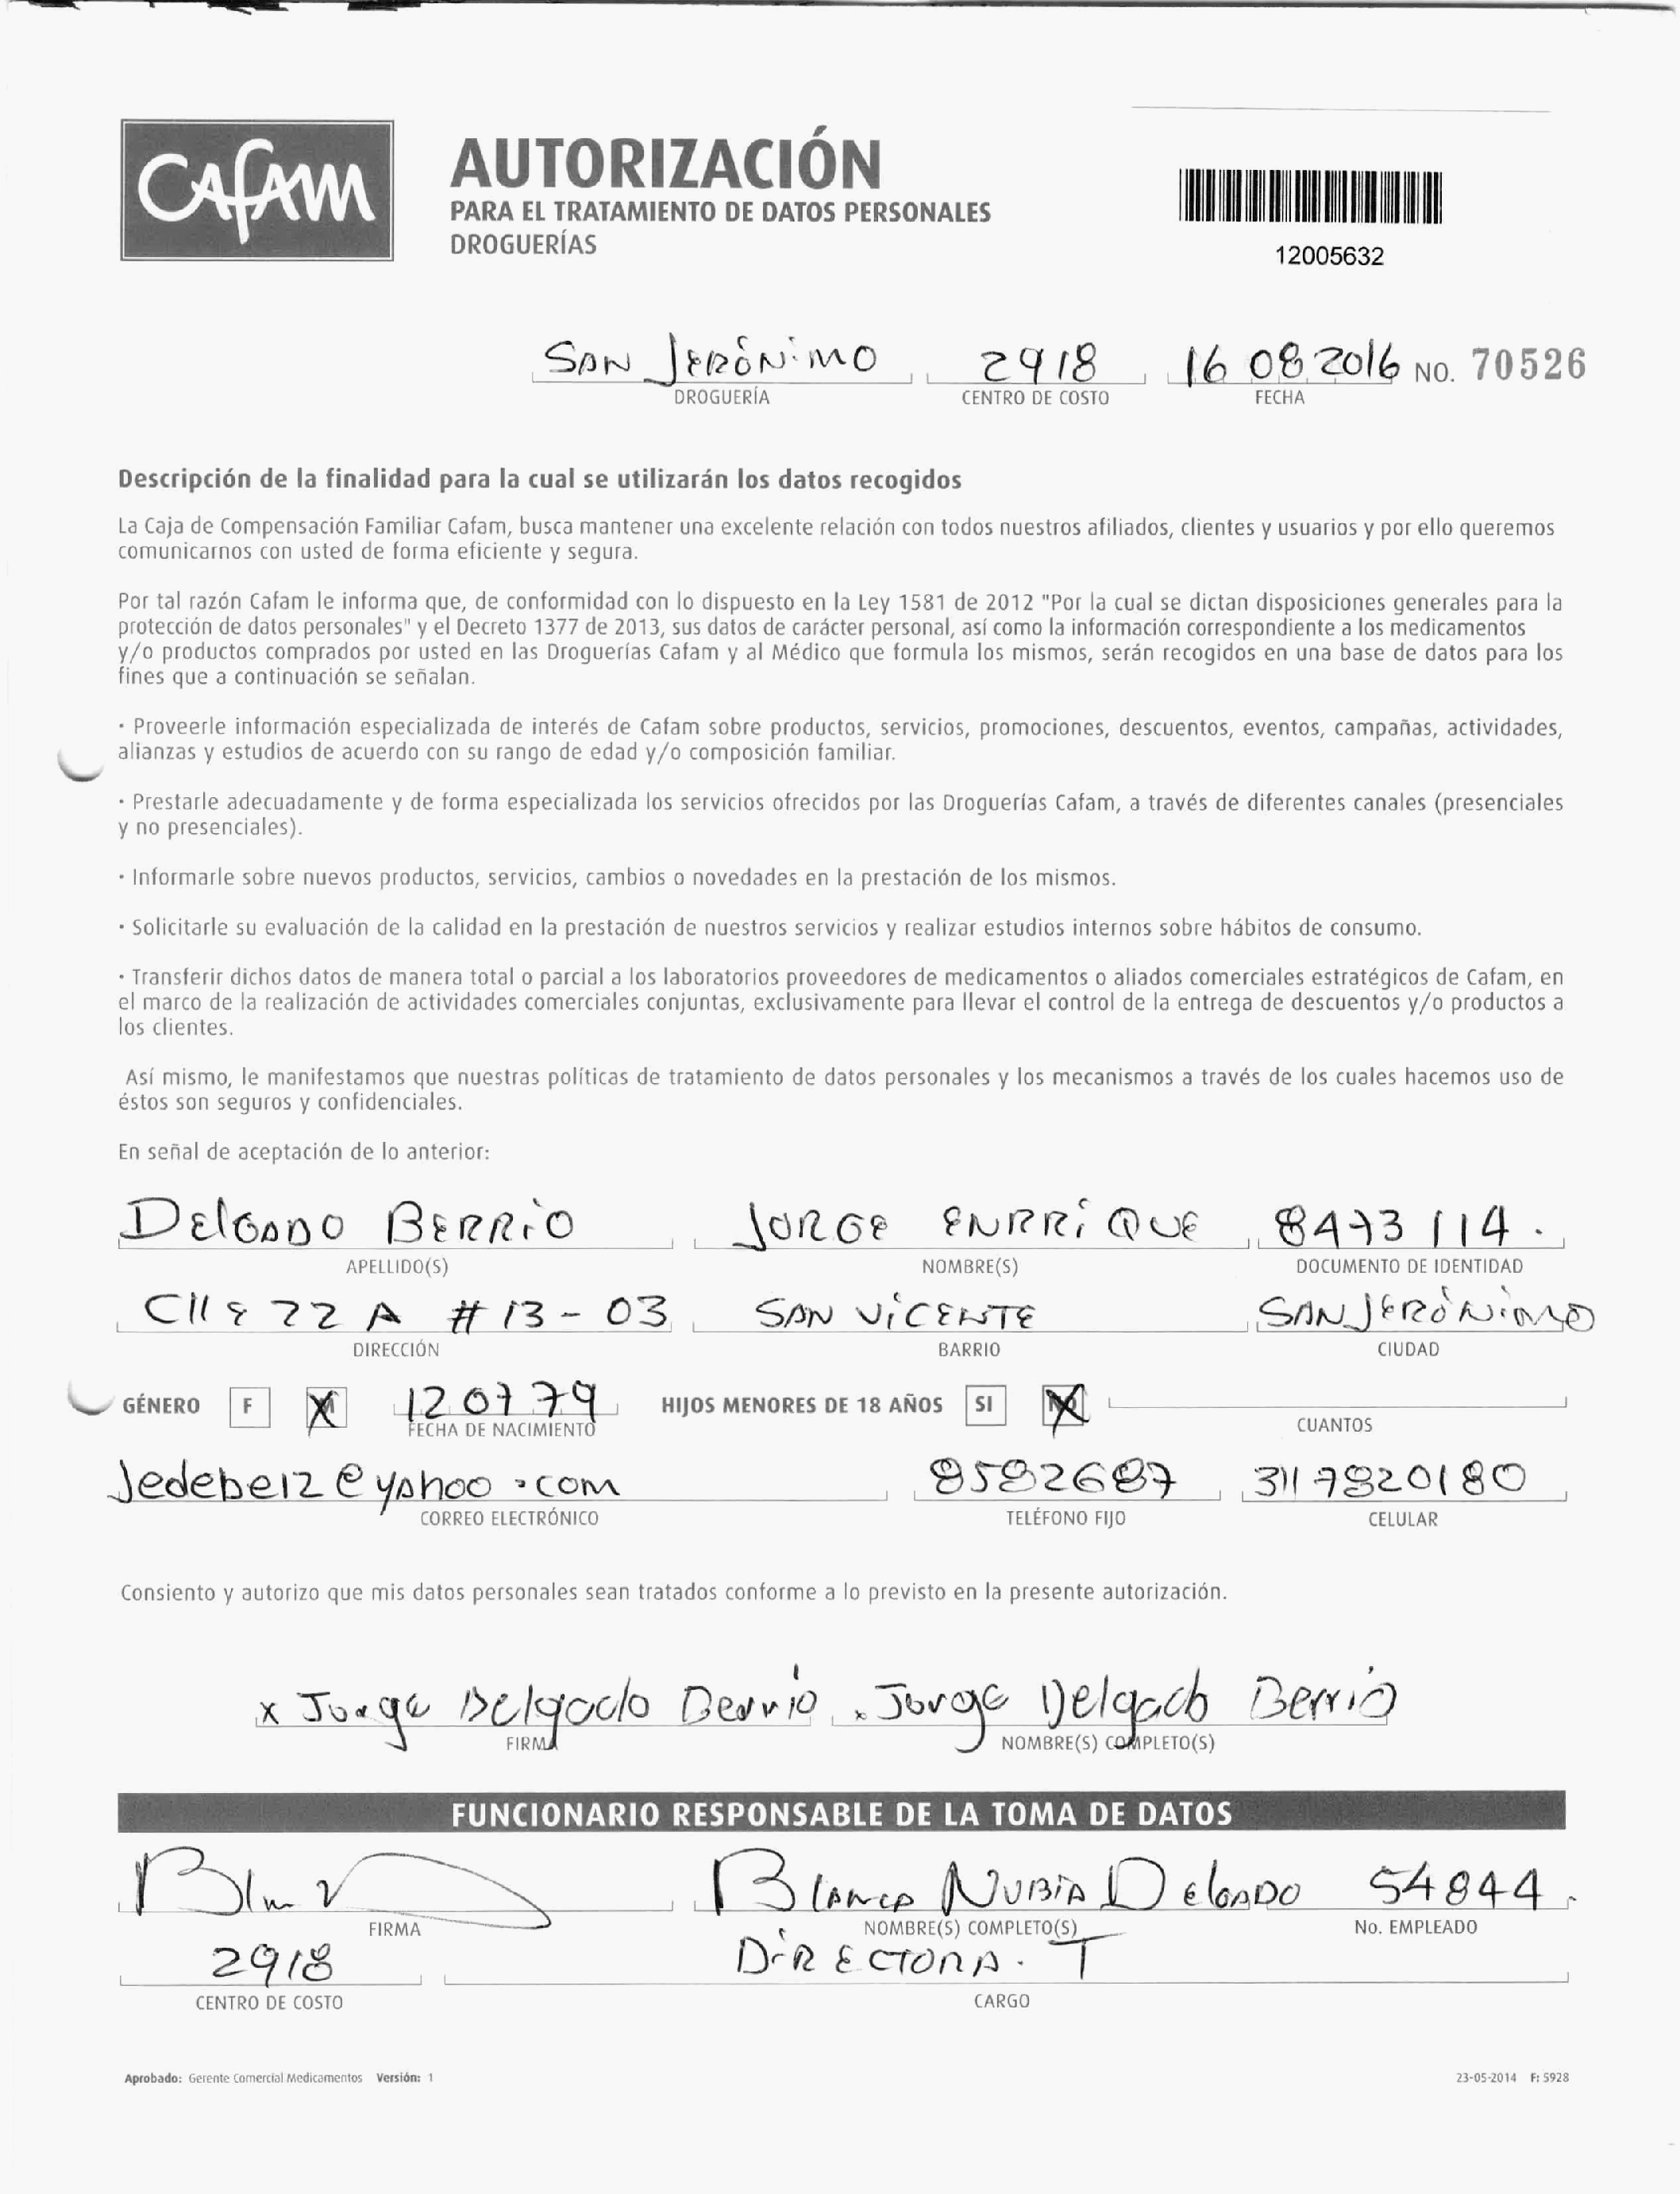 CAFAM
AUTORIZACIÓN
PARA EL TRATAMIENTO DE DATOS PERSONALES
DROGUERÍAS
12005632
SAN JERÓNIMO 2918 16 08 2016 NO. 70526
DROGUERÍA CENTRO DE COSTO FECHA
Descripción de la finalidad para la cual se utilizarán los datos recogidos
La Caja de Compensación Familiar Cafam, busca mantener una excelente relación con todos nuestros afiliados, clientes y usuarios y por ello queremos
comunicarnos con usted de forma eficiente y segura.
Por tal razón Cafam le informa que, de conformidad con lo dispuesto en la Ley 1581 de 2012 "Por la cual se dictan disposiciones generales para la
protección de datos personales" y el Decreto 1377 de 2013, sus datos de carácter personal, así como la información correspondiente a los medicamentos
y/o productos comprados por usted en las Droguerías Cafam y al Médico que formula los mismos, serán recogidos en una base de datos para los
fines que a continuación se señalan.
· Proveerle información especializada de interés de Cafam sobre productos, servicios, promociones, descuentos, eventos, campañas, actividades,
alianzas y estudios de acuerdo con su rango de edad y/o composición familiar.
· Prestarle adecuadamente y de forma especializada los servicios ofrecidos por las Droguerías Cafam, a través de diferentes canales (presenciales
y no presenciales).
· Informarle sobre nuevos productos, servicios, cambios o novedades en la prestación de los mismos.
· Solicitarle su evaluación de la calidad en la prestación de nuestros servicios y realizar estudios internos sobre hábitos de consumo.
· Transferir dichos datos de manera total o parcial a los laboratorios proveedores de medicamentos o aliados comerciales estratégicos de Cafam, en
el marco de la realización de actividades comerciales conjuntas, exclusivamente para llevar el control de la entrega de descuentos y/o productos a
los clientes.
Así mismo, le manifestamos que nuestras políticas de tratamiento de datos personales y los mecanismos a través de los cuales hacemos uso de
éstos son seguros y confidenciales.
En señal de aceptación de lo anterior:
DELGADO BERRIO JORGE ENRRIQUE 8473114.
APELLIDO(S) NOMBRE(S) DOCUMENTO DE IDENTIDAD
Clle 22 A # 13 - 03 SAN VICENTE SAN JERÓNIMO
DIRECCIÓN BARRIO CIUDAD
GÉNERO F M 12 07 79 HIJOS MENORES DE 18 AÑOS SI NO
FECHA DE NACIMIENTO CUANTOS
Jedebe12@yahoo.com 8582687 311 7820180
CORREO ELECTRÓNICO TELÉFONO FIJO CELULAR
Consiento y autorizo que mis datos personales sean tratados conforme a lo previsto en la presente autorización.
x Jorge Delgado Berrio x Jorge Delgado Berrio
FIRMA NOMBRE(S) COMPLETO(S)
FUNCIONARIO RESPONSABLE DE LA TOMA DE DATOS
BLANCA NUBIA DELGADO 54844
FIRMA NOMBRE(S) COMPLETO(S) No. EMPLEADO
2918 DIRECTORA. T
CENTRO DE COSTO CARGO
Aprobado: Gerente Comercial Medicamentos Versión: 1 23-05-2014 F: 5928